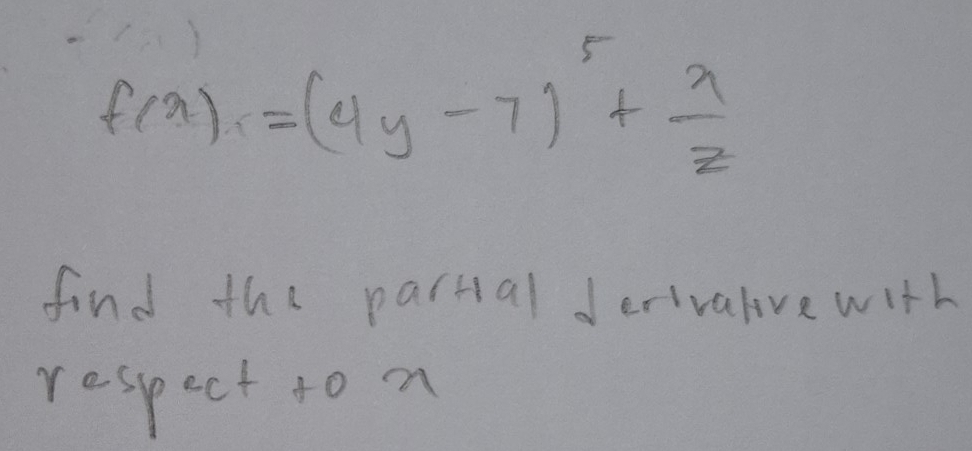 f(x) = (4y - 7)^5 + x/z
find the partial derivative with
respect to x